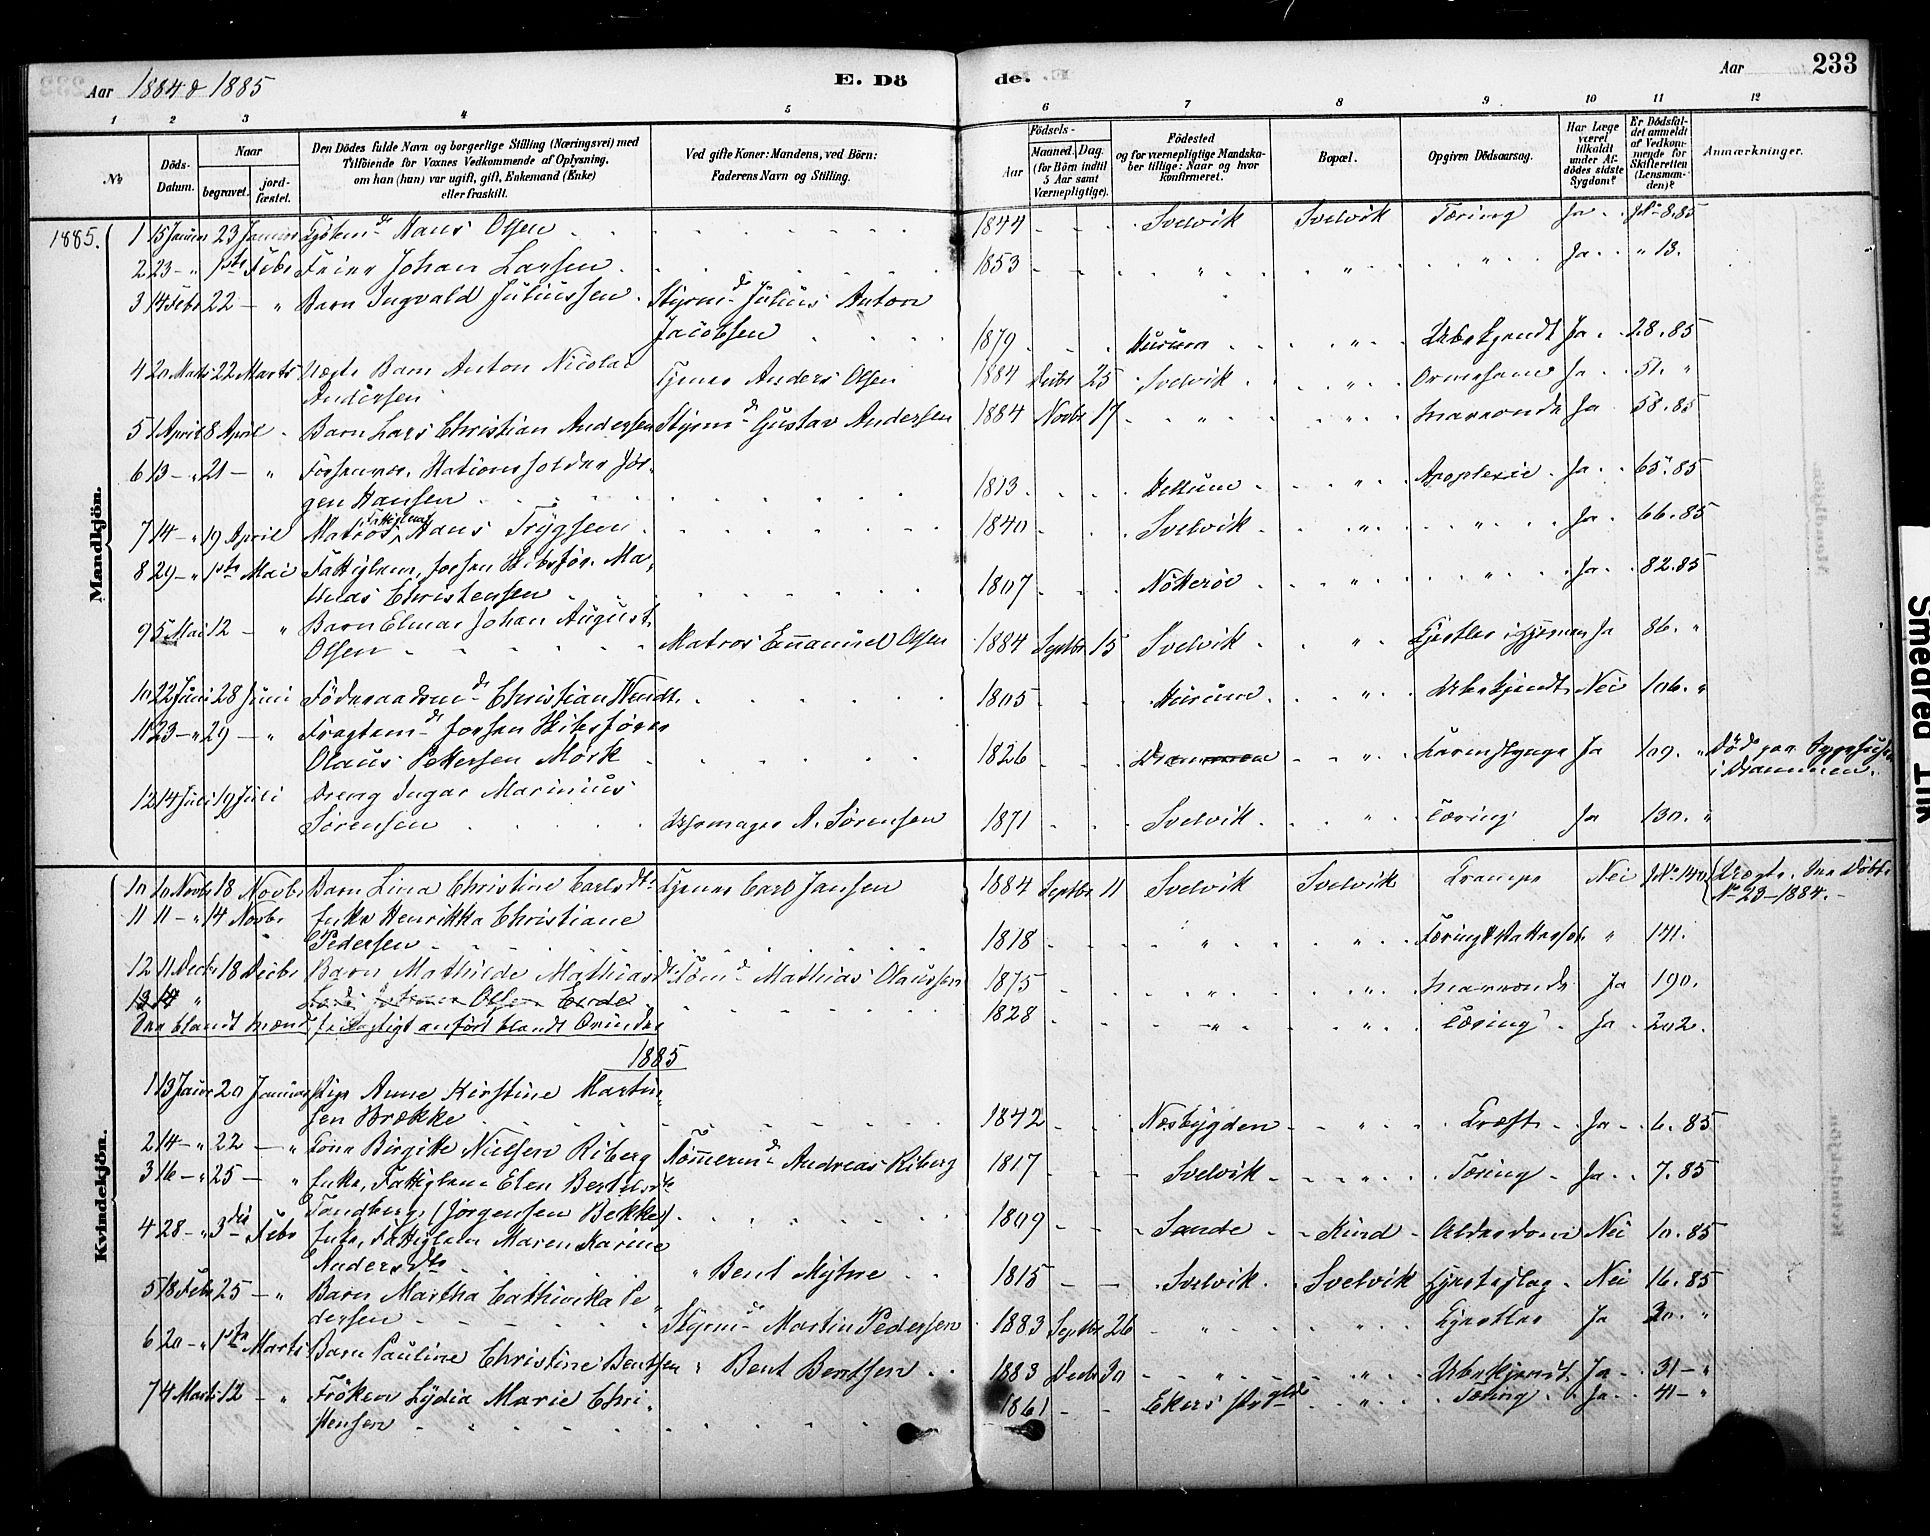 Aar 1884 & 1885
E. Dö
de.
Aar
233
1 2 3 4 5 6 7 8 9 10 11 12
No
Döds-Datum.
Naar
begravet.
jord-fæstet.
Den Dödes fulde Navn og borgerlige Stilling (Næringsvei) med
Tilföiende for Voxnes Vedkommende af Oplysning,
om han (hun) var ugift, gift, Enkemand (Enke)
eller fraskilt.
Ved gifte Koner: Mandens, ved Börn:
Faderens Navn og Stilling.
Födsels-
Aar
Maaned. Dag.
(for Börn indtil
5 Aar samt
Værnepligtige).
Födested
og for værnepligtige Mandska-
ber tillige: Naar og hvor
konfirmeret.
Bopæl.
Opgiven Dödsaarsag.
Har Læge
været
tilkaldt
under Af-
dödes sidste
Sygdom?
Er Dödsfal-
det anmeldt
af Vedkom-
mende for
Skifteretten
(Lensman-
den)?
Anmærkninger.
Mandkjön.
1885. 1 15 Januar 23 Januar Hans Olsen 1844 Svelvik Svelvik Tæring Ja No 8.85
2 23 - " 1ste Febr Feier Johan Larsen 1853 " " " Ja " 13.
3 14 Febr 22 - " Barn Ingvald Juliussen Styrmd Julius Anton
Jacobsen 1879 Hurum " Ubekjendt Ja 28.85
4 20 Marts 22 Marts Uægte Barn Anton Nicolai
Andersen Tjener Anders Olsen 1884 Decbr 25 Svelvik " Ja 51. "
5 1 April 8 April Barn Lars Christian Andersen Styrmd Gustav Andersen 1884 Novbr 17 " " Ja 58.85
6 13 - " 21 - " Stationsholder Jör-
gen Hansen 1813 " Apoplexie Ja 65.85
7 14 - " 19 April Matros, Fattiglem Hans Trygsen 1840 Svelvik " " Ja 66.85
8 29 - " 1ste Mai Fattiglem, Ma-
thias Christensen 1807 Nötterö " " Ja 82.85
9 5 Mai 12 - " Barn Elmar Johan August
Olsen Matros Emanuel Olsen 1884 Septbr 15 Svelvik " Ja 86. "
10 22 Juni 28 Juni Föderaadsmd Christian Wendt 1805 Hurum " Ubekjendt Nei 106. "
11 23 - " 29 - "
Olaus Pettersen Mörk 1826 Drammen " Ja 109. " Död paa Sygehuset
i Drammen.
12 14 Juli 19 Juli Dreng Ingar Marinius
Sörensen Uhrmager A. Sörensen 1871 Svelvik " Tæring Ja 130. "
Kvindekjön.
10 10 Novbr 18 Novbr Barn Lina Christine Carlsdtr Tjener Carl Jansen 1884 Septbr 11 Svelvik Svelvik Krampe Nei No 140 Uægte. Döbte
No 23-1884.
11 11 - " 14 Novbr Enke Henrikka Christiane
Pedersen 1818 " " " 141.
12 11 Decbr 18 Decbr Barn Mathilde Mathiasdtr Tömd Mathias Olaussen 1875 " " Ja 190.
13 14 " Olsen 1828 " " Tæring Ja 202.
anfört blandt Qvinder
1885
1 13 Janr 20 Januar Pige Anne Kirstine Martin-
sen Brække 1842 Næsbygden " Kræft Ja 6.85
2 14 - " 22 - " Kone Birgitte Nielsen Riberg Tömmermd Andreas Riberg 1817 Svelvik " Tæring Ja 7.85
3 16 - " 25 - " Enke, Fattiglem Elen Bertelsdtr
Tandberg (Jörgensen Bekken) 1809 Sande Alderdom Nei 10.85
4 28 - " 3die Febr Enke, Fattiglem Maren Karine
Andersdtr " Bent 1815 Svelvik Svelvik Hjerteslag Nei 16.85
5 18 Febr 25 - " Barn Martha Pe-
dersen Styrmd Martin Pedersen 1883 Septbr 26 " " Ja 30. "
6 20 - " 1ste Marts Barn Pauline Christine Bentsen " Bent Bentsen 1883 Decbr 30 " " Ubekjendt Ja 31 - "
7 4 Marts 12 - " Fröken Lydia Marie Chri-
stensen 1861 Ekers Prgld " Tæring Ja 41 - "
Smeared Ink